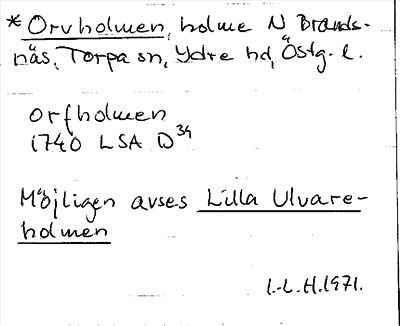 * Orvholmen, holme N Brands-
näs, Torpa sn, Ydre hd, Östg. l.
Orfholmen
1740 LSA D34
Möjligen avses Lilla Ulvare-
holmen
I.-L.H.1971.